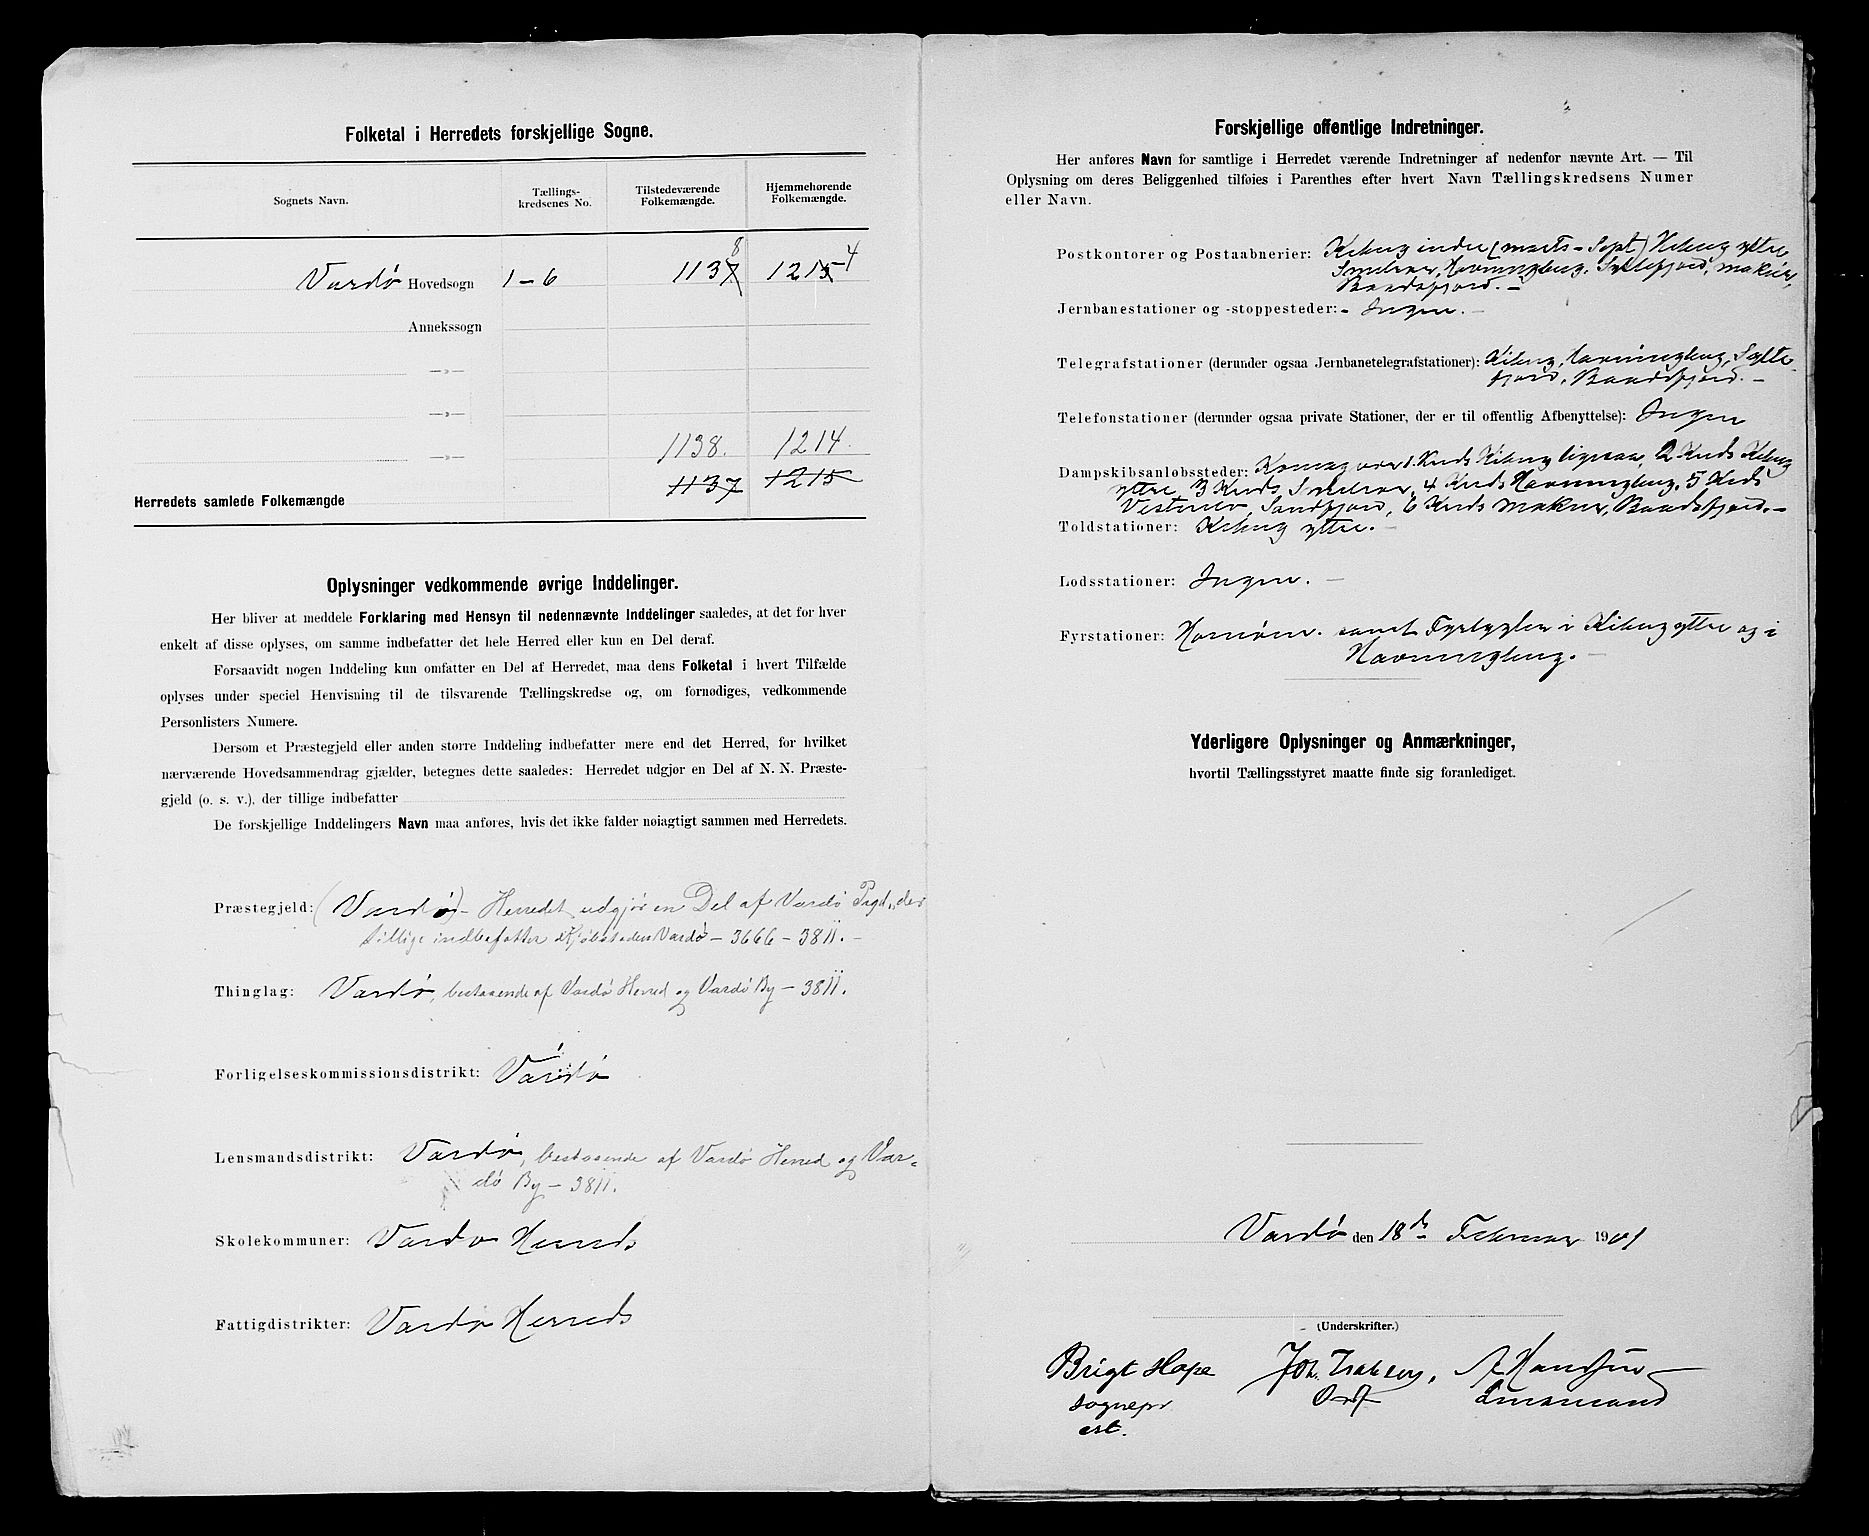 Folketal i Herredets forskjellige Sogne.
Sognets Navn.
Tællings-
kredsenes No.
Tilstedeværende
Folkemængde.
Hjemmehørende
Folkemængde.
Vardø Hovedsogn 1-6 1137 8 1215 4
Annekssogn
—»—
—»—
—»— 1138. 1214.
Herredets samlede Folkemængde 1137 1215
Oplysninger vedkommende øvrige Inddelinger.
Her bliver at meddele Forklaring med Hensyn til nedennævnte Inddelinger saaledes, at det for hver
enkelt af disse oplyses, om samme indbefatter det hele Herred eller kun en Del deraf.
Forsaavidt nogen Inddeling kun omfatter en Del af Herredet, maa dens Folketal i hvert Tilfælde
oplyses under speciel Henvisning til de tilsvarende Tællingskredse og, om fornødiges, vedkommende
Personlisters Numere.
Dersom et Præstegjeld eller anden større Inddeling indbefatter mere end det Herred, for hvilket
nærværende Hovedsammendrag gjælder, betegnes dette saaledes: Herredet udgjør en Del af N. N. Præste-
gjeld (o. s. v.), der tillige indbefatter
De forskjellige Inddelingers Navn maa anføres, hvis det ikke falder nøiagtigt sammen med Herredets.
Præstegjeld: (Vardø) - Herredet udgjør en Del af Vardø Prgd., der
tillige indbefatter Kjøbstaden Vardø - 3666 - 3811. -
Thinglag: Vardø, bestaaende af Vardø Herred og Vardø By - 3811.
Forligelseskommissionsdistrikt: Vardø
Lensmandsdistrikt: Vardø, bestaaende af Vardø Herred og Var-
dø By - 3811.
Skolekommuner: Vardø Herreds
Fattigdistrikter: Vardø Herreds
Forskjellige offentlige Indretninger.
Her anføres Navn for samtlige i Herredet værende Indretninger af nedenfor nævnte Art. — Til
Oplysning om deres Beliggenhed tilføies i Parenthes efter hvert Navn Tællingskredsens Numer
eller Navn.
Postkontorer og Postaabnerier: Kiberg indre (marts - Sept) Kiberg ytre
Havningberg, Syltefjord, Makur,
Baadsfjord. -
Jernbanestationer og -stoppesteder: - Ingen. -
Telegrafstationer (derunder ogsaa Jernbanetelegrafstationer): Kiberg, Havningberg, Sylte-
fjord, Baadsfjord. -
Telefonstationer (derunder ogsaa private Stationer, der er til offentlig Afbenyttelse): Ingen
Dampskibsanløbssteder: 1 Kreds Kiberg 2 Kreds Kiberg
ytre 3 Kreds 4 Kreds Havningberg, 5 Kreds
Sandfjord, 6 Kreds Makur, Baadsfjord. -
Toldstationer: Kiberg ytre. -
Lodsstationer: Ingen. -
Fyrstationer: Hornøen. samt Fyrlygter i Kiberg ytre og i
Havningberg. -
Yderligere Oplysninger og Anmærkninger,
hvortil Tællingsstyret maatte finde sig foranlediget.
Vardø den 18de Februar 1901
(Underskrifter.)
Brigt Hope
sognepr
est.
Joh. Isaksen,
Ordf
A Hansen
Lensmand